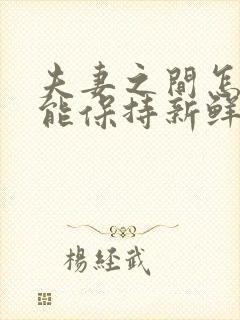 夫妻之間怎
能保持新鮮
楊經武